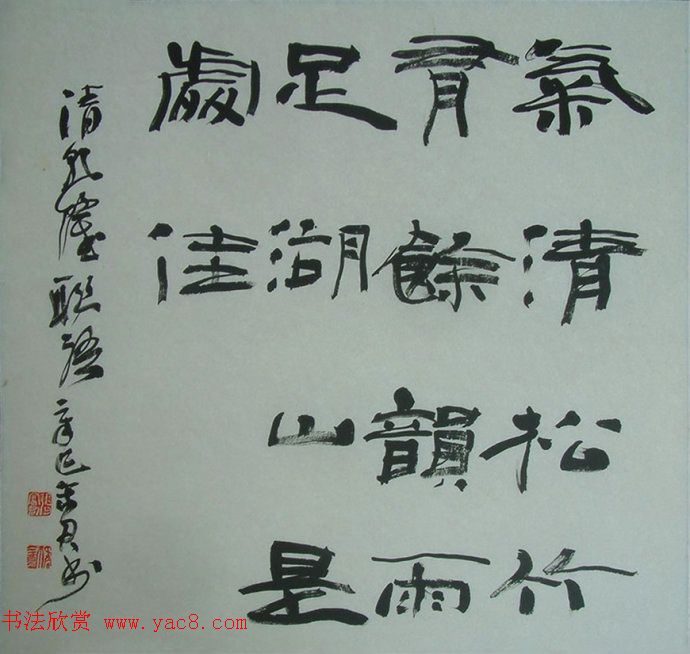 氣清松竹
有餘韻雨
足湖山是
處佳
清乾隆聯語 辛巳
书法欣赏 www.yac8.com